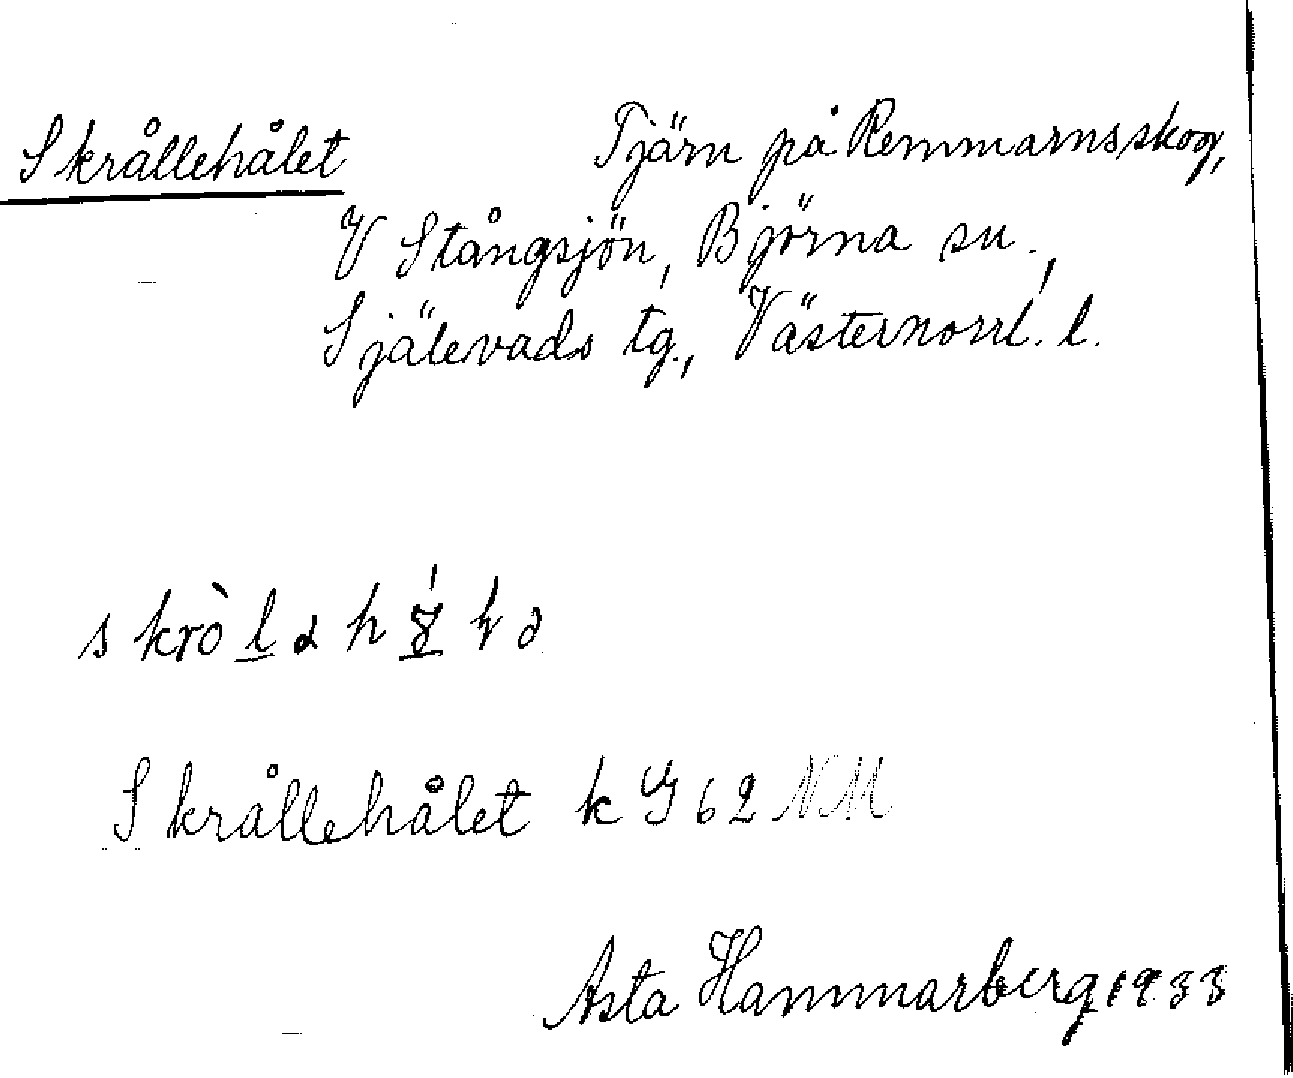 Skrållehålet Tjärn på Remmarnsskog,
V Stångsjön, Björna sn.,
Själevads tg., Västernorrl. l.
Skrållehålet k G 62 NM
Asta Hammarberg 1933